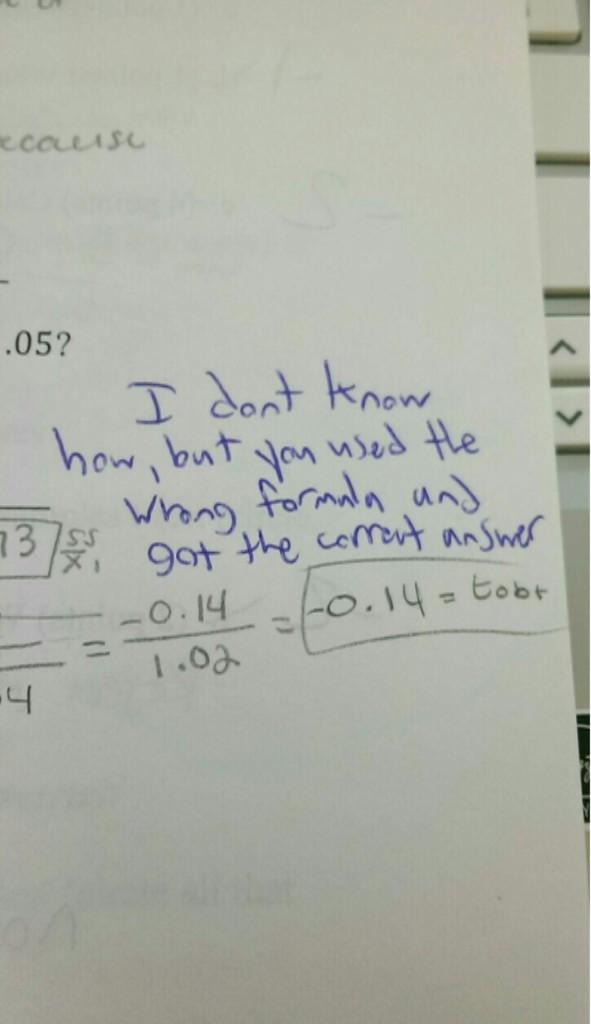 ecause
.05?
I dont know
how, but you used the
wrong formula and
got the correct answer
73 SS
X1
= -0.14 / 1.02 = -0.14 = tobt
4